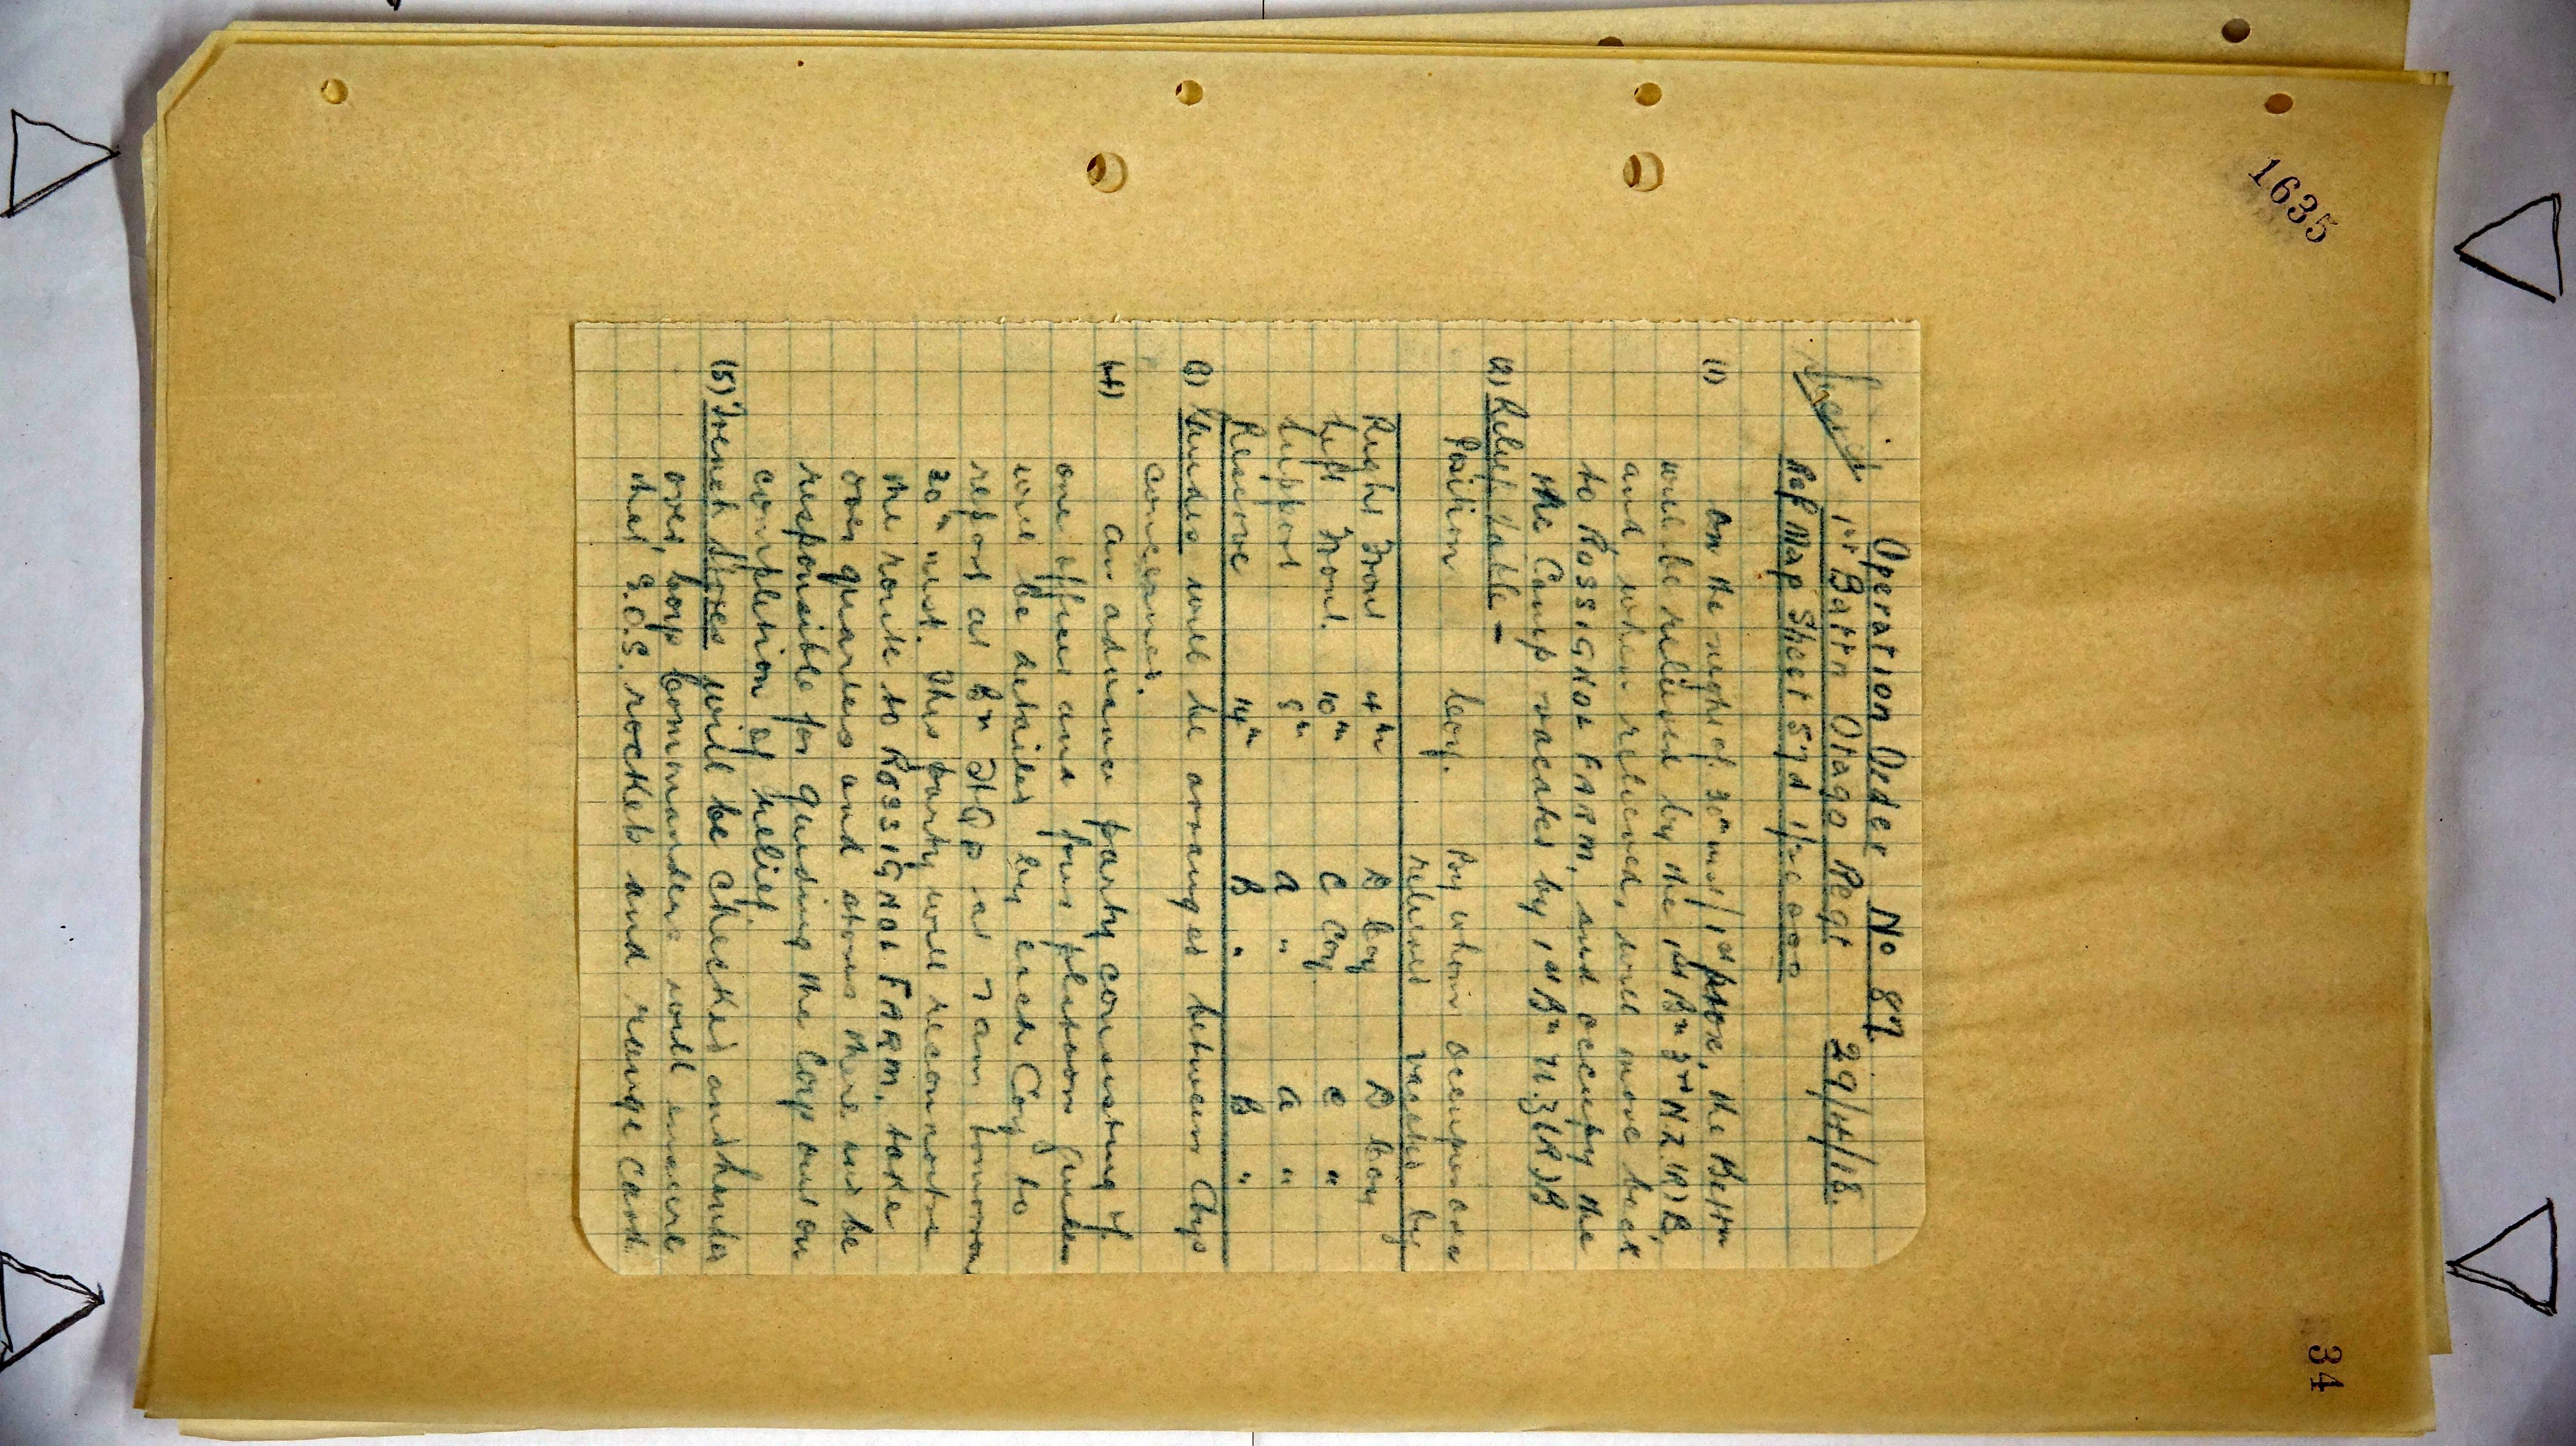 1635
34
Operation Order No 87.
Secret 1st Battn Otago Regt 29/4/18.
Ref Map Sheet 57d 1/20000
(1) On the night of 30th inst/1st prox, the Battn
will be relieved by the 1st Bn 3rd N.Z.(R)B,
and when relieved, will move back
to ROSSIGNOL FARM, and occupy the
the Camp vacated by 1st Bn N.Z.(R)B
(2) Relief Table -
Position Coy. By whom Accomposition
relieved vacated by
Right Front 4th D Coy D Coy
Left Front. 10th C Coy. C "
Support 8th A " A "
Reserve 14th B " B "
(3) Guides will be arranged between Coys
concerned.
(4) An advance party consisting of
one officer and four platoon guides
will be detailed by each Coy to
report at Bn HQrs at 7 am tomorrow
30th inst. This party will reconnoitre
the route to ROSSIGNOL FARM, take
over quarters and stores there and be
responsible for guiding the Coys out on
completion of relief
(5) Trench Stores will be checked and handed
over, Coy Commanders will ensure
that S.O.S. rockets and range Cards